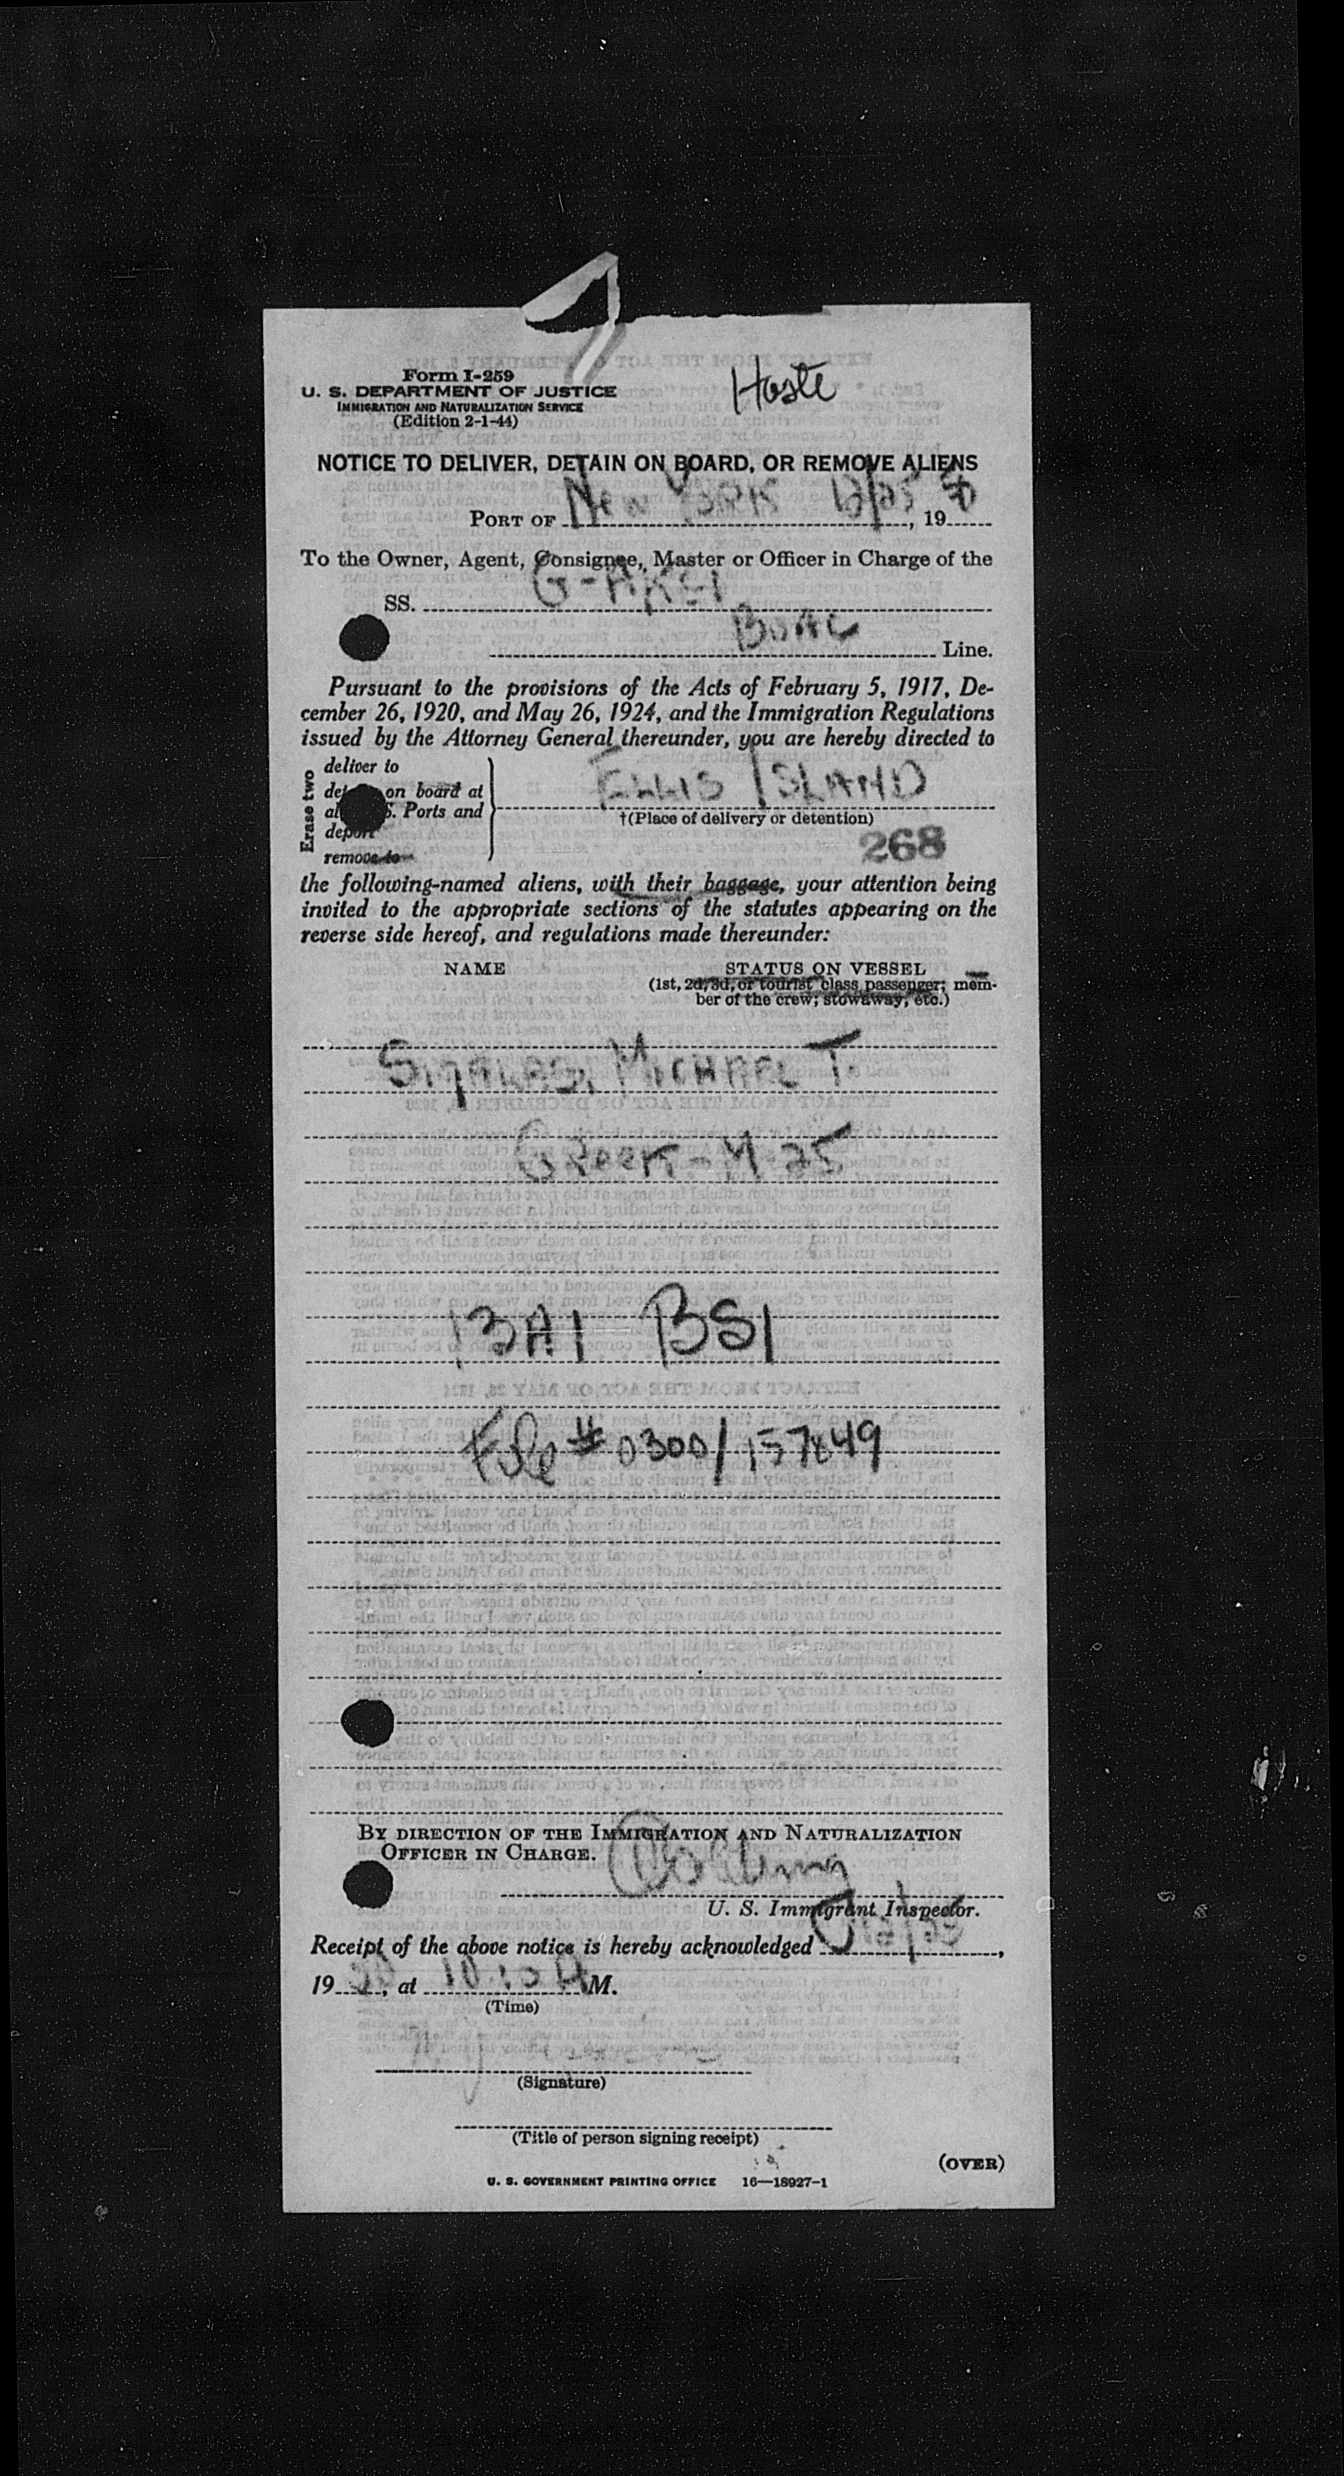 Form I-259
U. S. DEPARTMENT OF JUSTICE
IMMIGRATION AND NATURALIZATION SERVICE
(Edition 2-1-44)
NOTICE TO DELIVER, DETAIN ON BOARD, OR REMOVE ALIENS
PORT OF New York 12/25, 1950
To the Owner, Agent, Consignee, Master or Officer in Charge of the
SS. G-AKGI
BOAC Line.
Pursuant to the provisions of the Acts of February 5, 1917, De-
cember 26, 1920, and May 26, 1924, and the Immigration Regulations
issued by the Attorney General thereunder, you are hereby directed to
Erase two
deliver to
on board at
S. Ports and
deport
remove to
ELLIS ISLAND
†(Place of delivery or detention)
268
the following-named aliens, with their baggage, your attention being
invited to the appropriate sections of the statutes appearing on the
reverse side hereof, and regulations made thereunder:
NAME STATUS ON VESSEL
(1st, 2d, 3d, or tourist class passenger; mem-
ber of the crew; stowaway, etc.)
MICHAEL T.
GREEK - M-25
13A1 BSI
File # 0300/157849
BY DIRECTION OF THE IMMIGRATION AND NATURALIZATION
OFFICER IN CHARGE.
U. S. Immigrant Inspector.
Receipt of the above notice is hereby acknowledged 12/25,
1950, at M.
(Time)
(Signature)
(Title of person signing receipt)
(OVER)
U. S. GOVERNMENT PRINTING OFFICE 16—18927-1